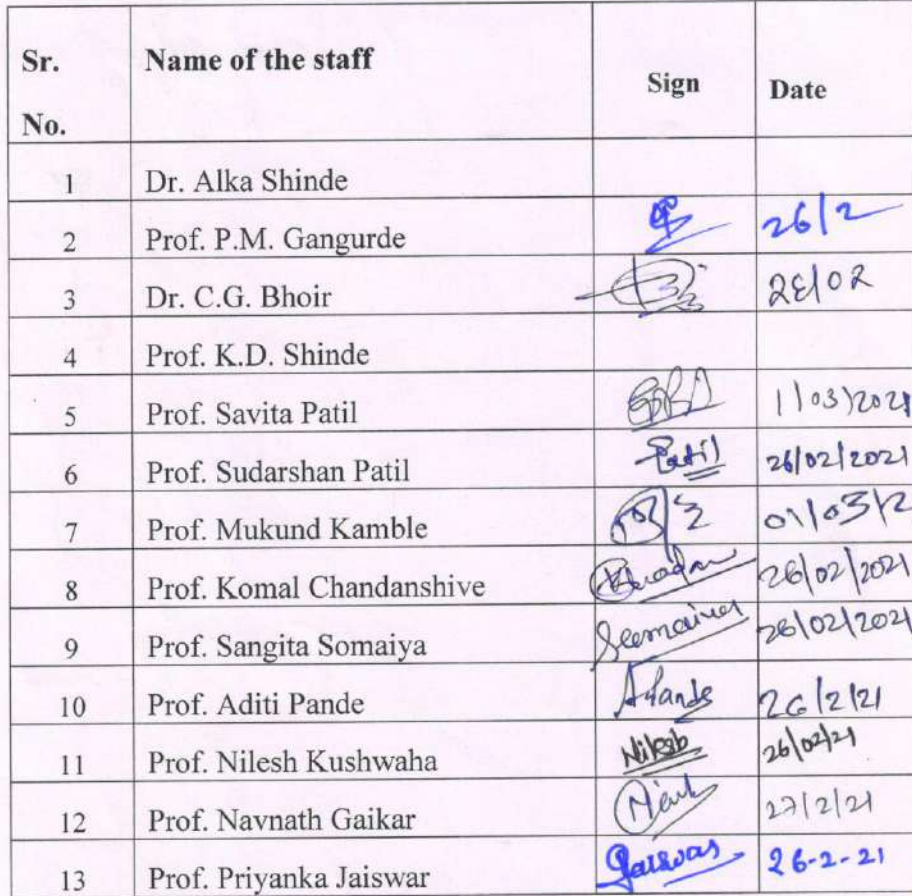 Sr. No. Name of the staff Sign Date
1 Dr. Alka Shinde
2 Prof. P.M. Gangurde 26/2
3 Dr. C.G. Bhoir 26/02
4 Prof. K.D. Shinde
5 Prof. Savita Patil 1/03/2021
6 Prof. Sudarshan Patil Patil 26/02/2021
7 Prof. Mukund Kamble 01/03/2
8 Prof. Komal Chandanshive 26/02/2021
9 Prof. Sangita Somaiya 26/02/2021
10 Prof. Aditi Pande APande 26/2/21
11 Prof. Nilesh Kushwaha Nilesh 26/02/21
12 Prof. Navnath Gaikar 27/2/21
13 Prof. Priyanka Jaiswar 26-2-21